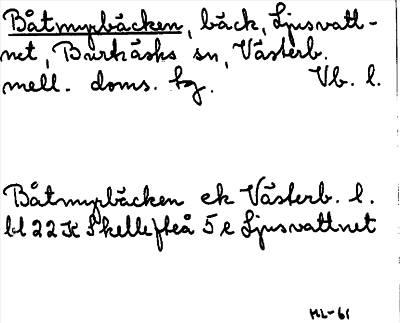 Båtmyrbäcken, bäck, Ljusvatt-
net, Burträsks sn, Västerb.
mell. doms. tg. Vb. l.
Båtmyrbäcken ek Västerb. l.
bl 22 K Skellefteå 5 e Ljusvattnet
HL-61